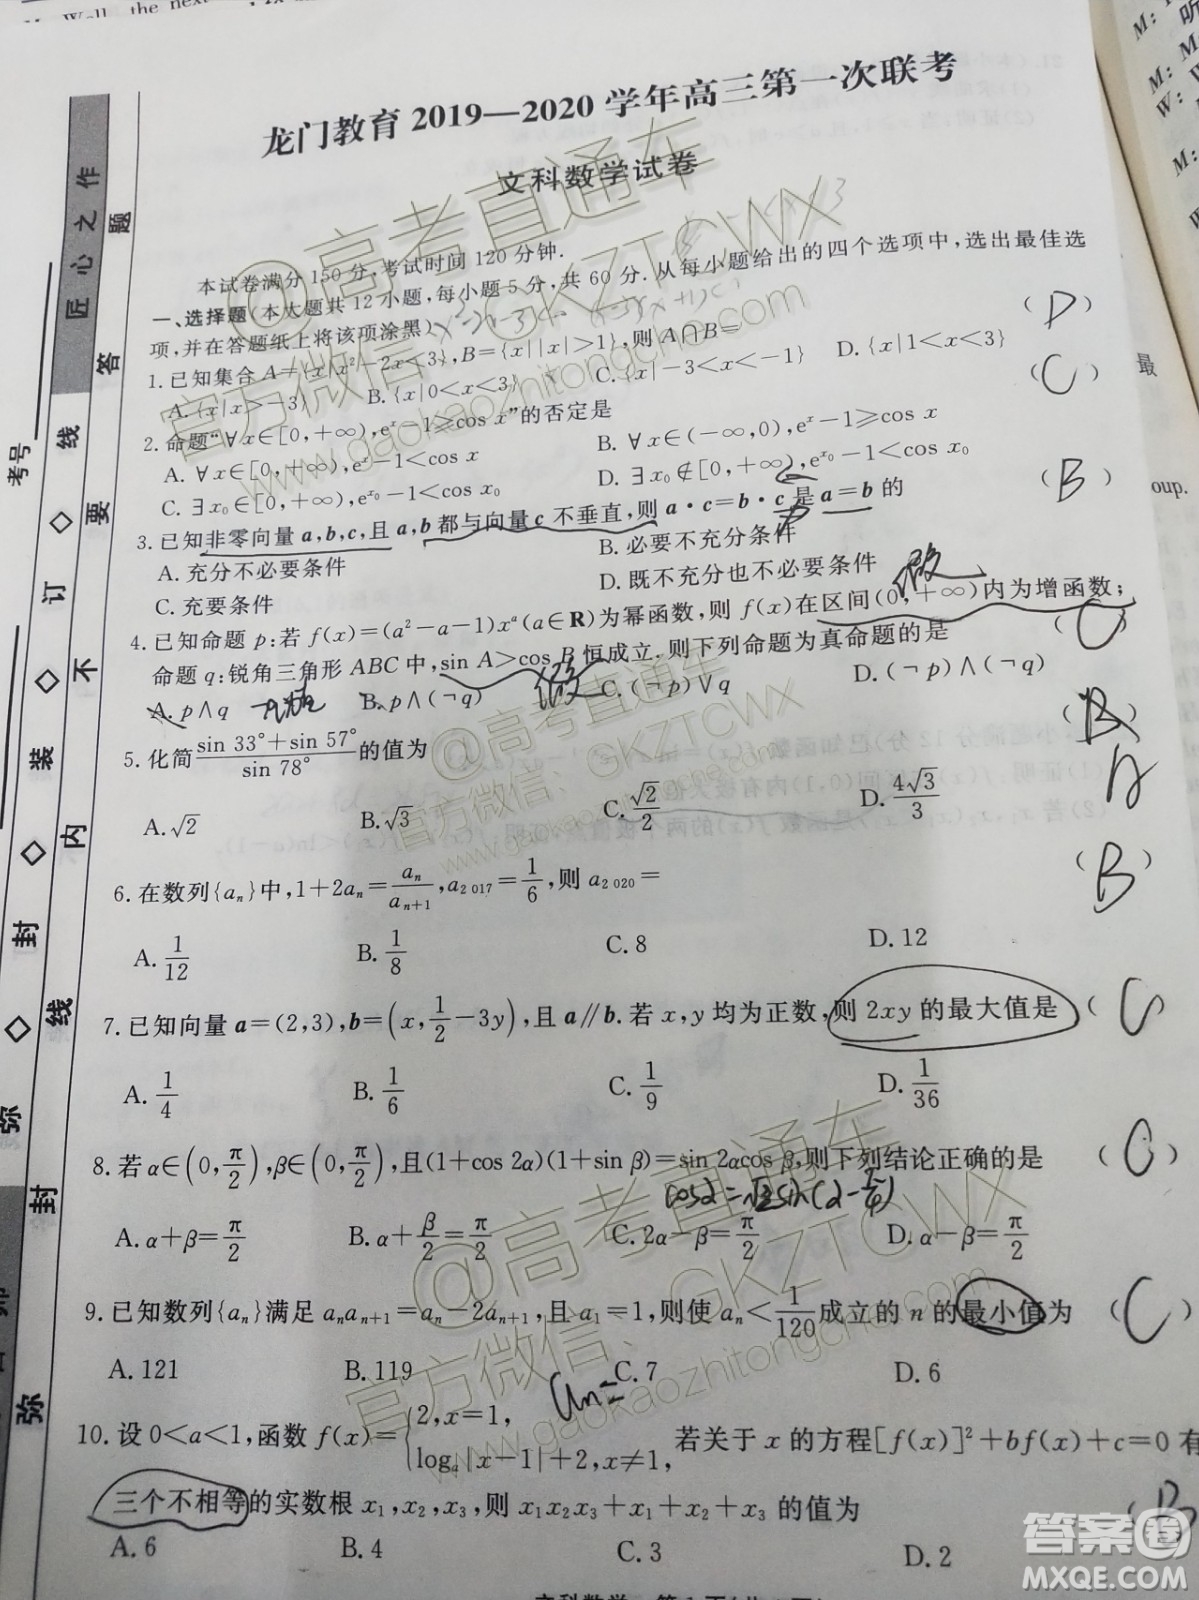 龙门教育 2019—2020 学年高三第一次联考
文科数学试卷
本试卷满分 150 分,考试时间 120 分钟.
一、选择题(本大题共 12 小题,每小题 5 分,共 60 分. 从每小题给出的四个选项中,选出最佳选
项,并在答题纸上将该项涂黑)
1. 已知集合 A={x|x²-2x<3},B={x||x|>1},则 A∩B= (D)
A. {x|x>-3} B. {x|0<x<3} C. {x|-3<x<-1} D. {x|1<x<3}
2. 命题“∀x∈[0,+∞),eˣ-1≥cos x”的否定是 (C)
A. ∀x∈[0,+∞),eˣ-1<cos x B. ∀x∈(-∞,0),eˣ-1≥cos x
C. ∃x₀∈[0,+∞),e^{x₀}-1<cos x₀ D. ∃x₀∉[0,+∞),e^{x₀}-1<cos x₀
3. 已知非零向量 a,b,c,且 a,b 都与向量 c 不垂直,则 a·c=b·c 是 a=b 的 (B)
A. 充分不必要条件 B. 必要不充分条件
C. 充要条件 D. 既不充分也不必要条件
4. 已知命题 p:若 f(x)=(a²-a-1)xᵃ(a∈R)为幂函数,则 f(x)在区间(0,+∞)内为增函数;
命题 q:锐角三角形 ABC 中,sin A>cos B 恒成立. 则下列命题为真命题的是 (C)
A. p∧q B. p∧(¬q) C. (¬p)∨q D. (¬p)∧(¬q)
5. 化简 (sin 33°+sin 57°)/(sin 78°) 的值为 (B)
A
A. √2 B. √3 C. √2/2 D. 4√3/3
6. 在数列{aₙ}中,1+2aₙ=aₙ/aₙ₊₁,a₂₀₁₇=1/6,则 a₂₀₂₀= (B)
A. 1/12 B. 1/8 C. 8 D. 12
7. 已知向量 a=(2,3),b=(x,1/2-3y),且 a∥b. 若 x,y 均为正数,则 2xy 的最大值是 (C)
A. 1/4 B. 1/6 C. 1/9 D. 1/36
8. 若 α∈(0,π/2),β∈(0,π/2),且(1+cos 2α)(1+sin β)=sin 2αcos β,则下列结论正确的是 (C)
A. α+β=π/2 B. α+β/2=π/2 C. 2α-β=π/2 D. α-β=π/2
9. 已知数列{aₙ}满足 aₙaₙ₊₁=aₙ-2aₙ₊₁,且 a₁=1,则使 aₙ<1/120 成立的 n 的最小值为 (C)
A. 121 B. 119 C. 7 D. 6
10. 设 0<a<1,函数 f(x)={2,x=1,
logₐ|x-1|+2,x≠1, 若关于 x 的方程[f(x)]²+bf(x)+c=0 有
三个不相等的实数根 x₁,x₂,x₃,则 x₁x₂x₃+x₁+x₂+x₃ 的值为 (B)
A. 6 B. 4 C. 3 D. 2
匠心之作
考号
弥 ◇ 封 ◇ 装 ◇ 订 ◇ 线
弥 封 线 内 不 要 答 题
@高考直通车
官方微信:GKZTCWX
www.gaokaozhitongche.com
答案圈
MXQE.COM